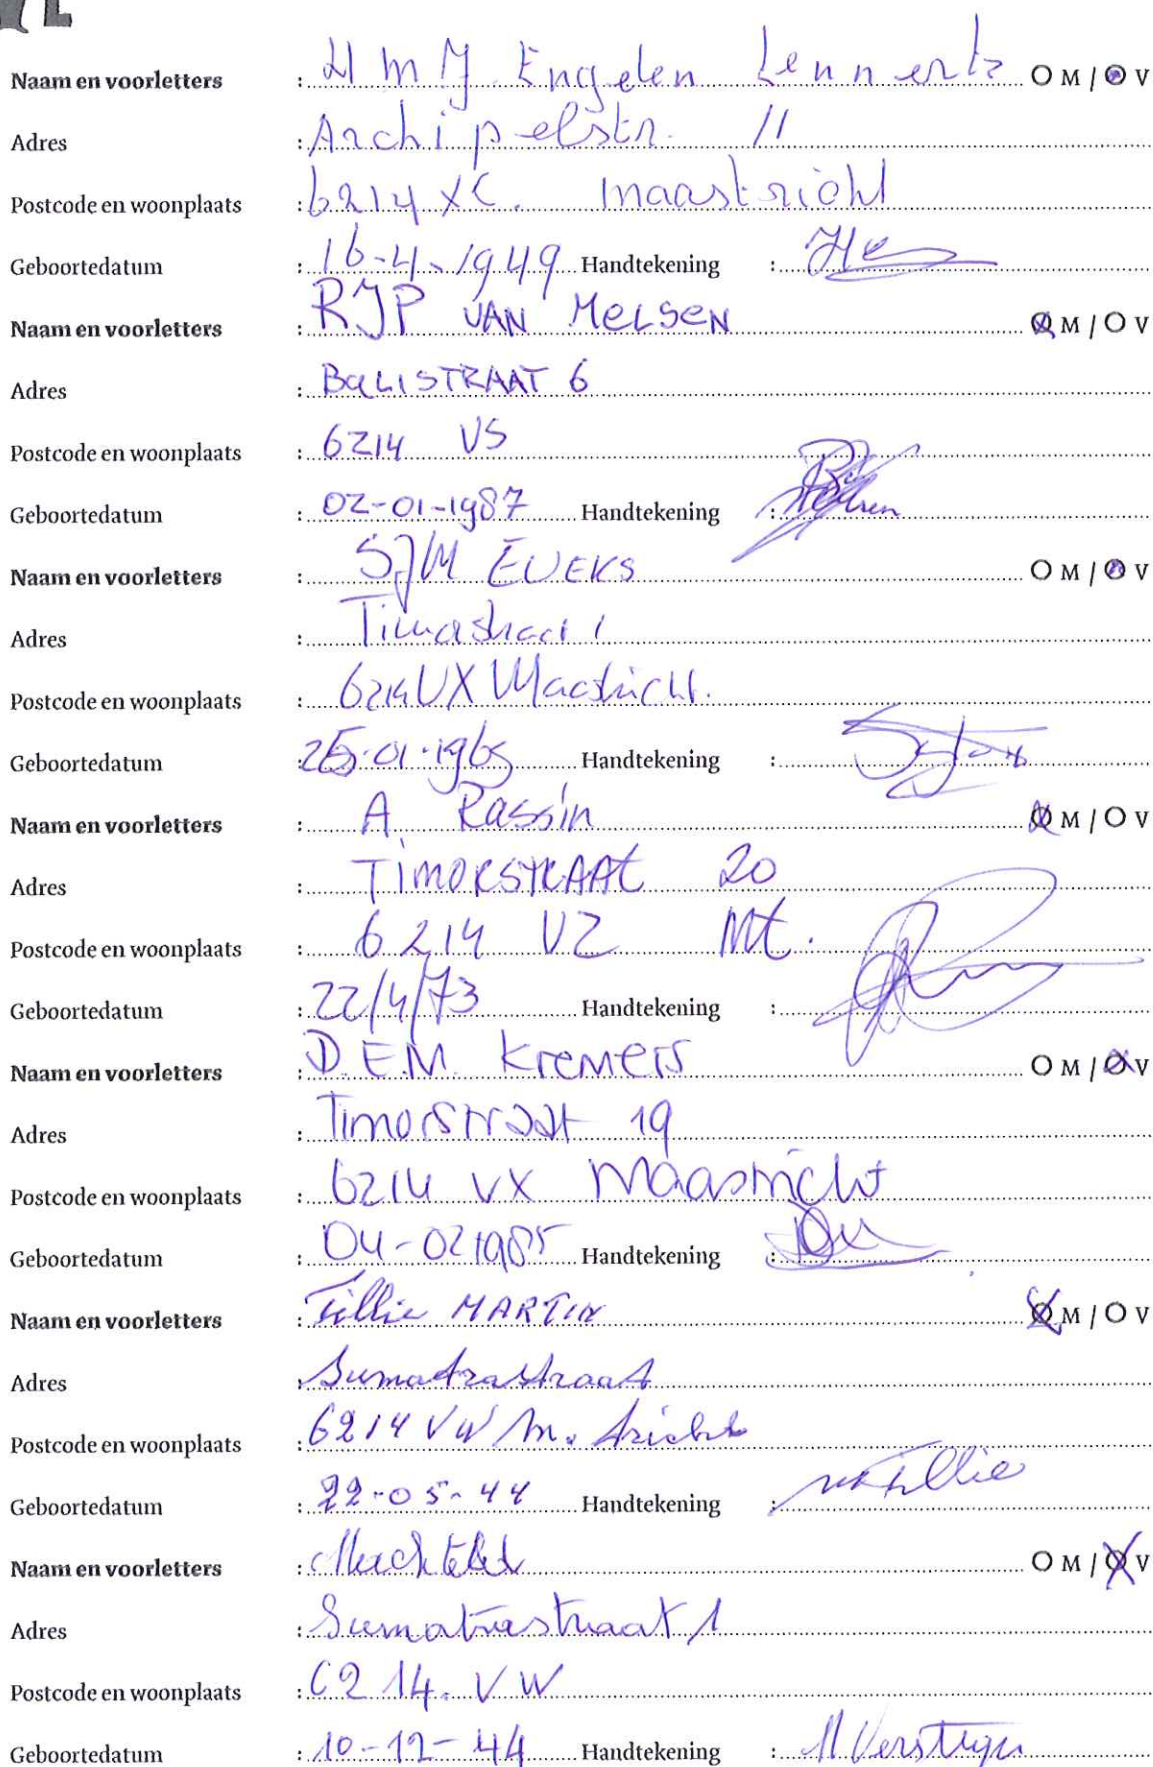 Naam en voorletters : H M J Engelen Lennertz O M / O V
Adres : Archipelstr. 11
Postcode en woonplaats : 6214 XC. Maastricht
Geboortedatum : 16-4-1949 Handtekening :
Naam en voorletters : RJP VAN MELSEN O M / O V
Adres : BALISTRAAT 6
Postcode en woonplaats : 6214 VS
Geboortedatum : 02-01-1987 Handtekening :
Naam en voorletters : SJM O M / O V
Adres : 1
Postcode en woonplaats : 6214 VX Maastricht.
Geboortedatum : 25-01-1965 Handtekening :
Naam en voorletters : A Rassin O M / O V
Adres : TIMORSTRAAT 20
Postcode en woonplaats : 6214 VZ Mt.
Geboortedatum : 22/4/73 Handtekening :
Naam en voorletters : D.E.M. Kremers O M / O V
Adres : Timorstraat 19
Postcode en woonplaats : 6214 VX Maastricht
Geboortedatum : 04-02 1985 Handtekening :
Naam en voorletters : Tillie MARTIN O M / O V
Adres : Sumatrastraat
Postcode en woonplaats : 6214 VW M. tricht
Geboortedatum : 22-05-44 Handtekening : Tillie
Naam en voorletters : Machteld O M / O V
Adres : Sumatrastraat 1
Postcode en woonplaats : 6214. VW
Geboortedatum : 10-12-44 Handtekening :